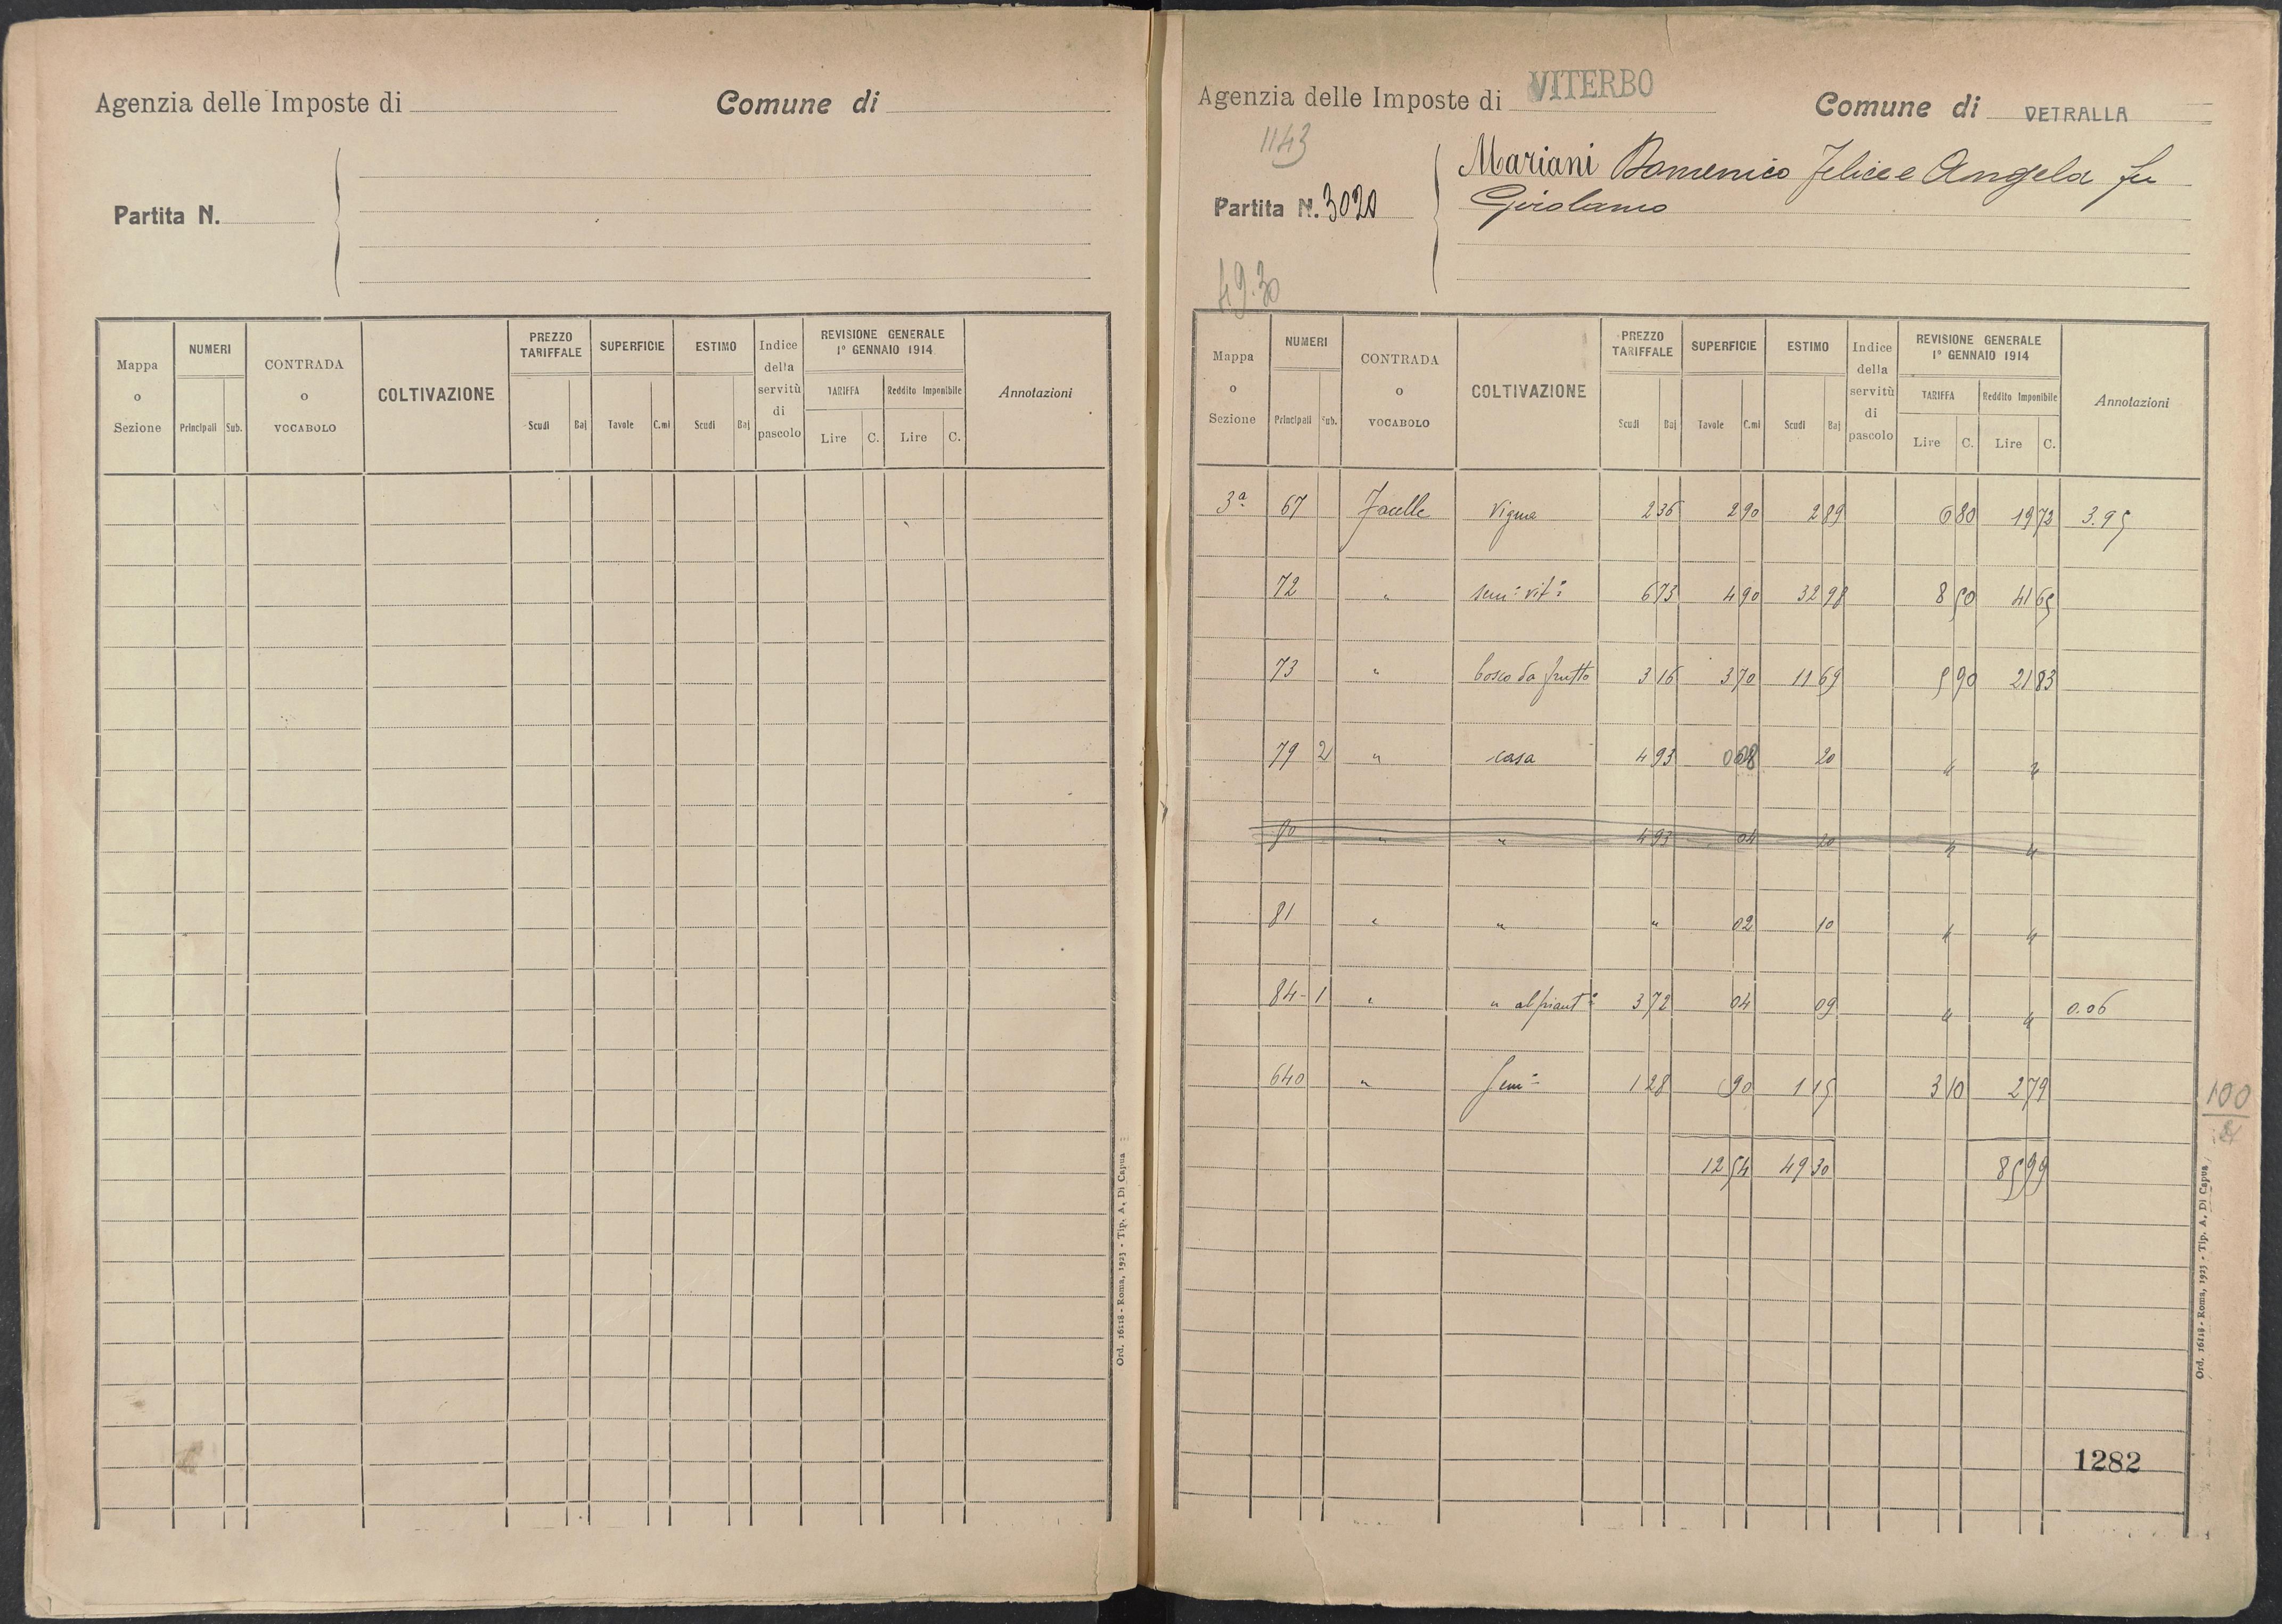 Agenzia delle Imposte di
Comune di
Partita N.
Mappa o Sezione
NUMERI
Principali Sub.
CONTRADA o VOCABOLO
COLTIVAZIONE
PREZZO TARIFFALE
Scudi Baj
SUPERFICIE
Tavole C.mi
ESTIMO
Scudi Baj
Indice della servitù di pascolo
REVISIONE GENERALE
1° GENNAIO 1914
TARIFFA Reddito Imponibile
Lire C. Lire C.
Annotazioni
Ord. 16118 - Roma, 1923 - Tip. A. Di Capua
Agenzia delle Imposte di VITERBO
Comune di VETRALLA
1143
Partita N. 3020
Mariani Domenico Felice e Angela fu
Girolamo
49.30
Mappa o Sezione
NUMERI
Principali Sub.
CONTRADA o VOCABOLO
COLTIVAZIONE
PREZZO TARIFFALE
Scudi Baj
SUPERFICIE
Tavole C.mi
ESTIMO
Scudi Baj
Indice della servitù di pascolo
REVISIONE GENERALE
1° GENNAIO 1914
TARIFFA Reddito Imponibile
Lire C. Lire C.
Annotazioni
3ª 67 Vigna 2 36 2 90 2 89 6 80 19 72 3.95
72 " sem° vit° 6 73 4 90 32 98 8 50 41 65
73 " bosco da frutto 3 16 3 70 11 69 5 90 21 83
79 2 " casa 4 93 008 20 " "
80 " " 4 93 04 20 " "
81 " " " 02 10 " "
84 - 1 " " 3 72 04 09 " " 0.06
640 " Sem° 1 28 90 1 15 3 10 2 79
12 54 49 30 85 99
100
1282
Ord. 16118 - Roma, 1923 - Tip. A. Di Capua